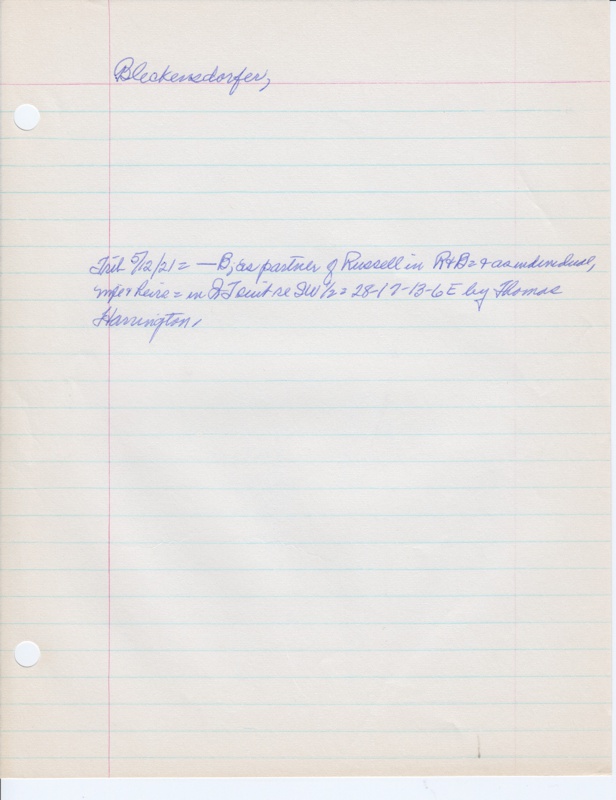 Bleckensdorfer,
Trib 5/12/21 = — B, as partner of Russell in R+B = + as individual,
heirs = in suit re W 1/2 = 28-17-13-6E by Thomas
Harrington,